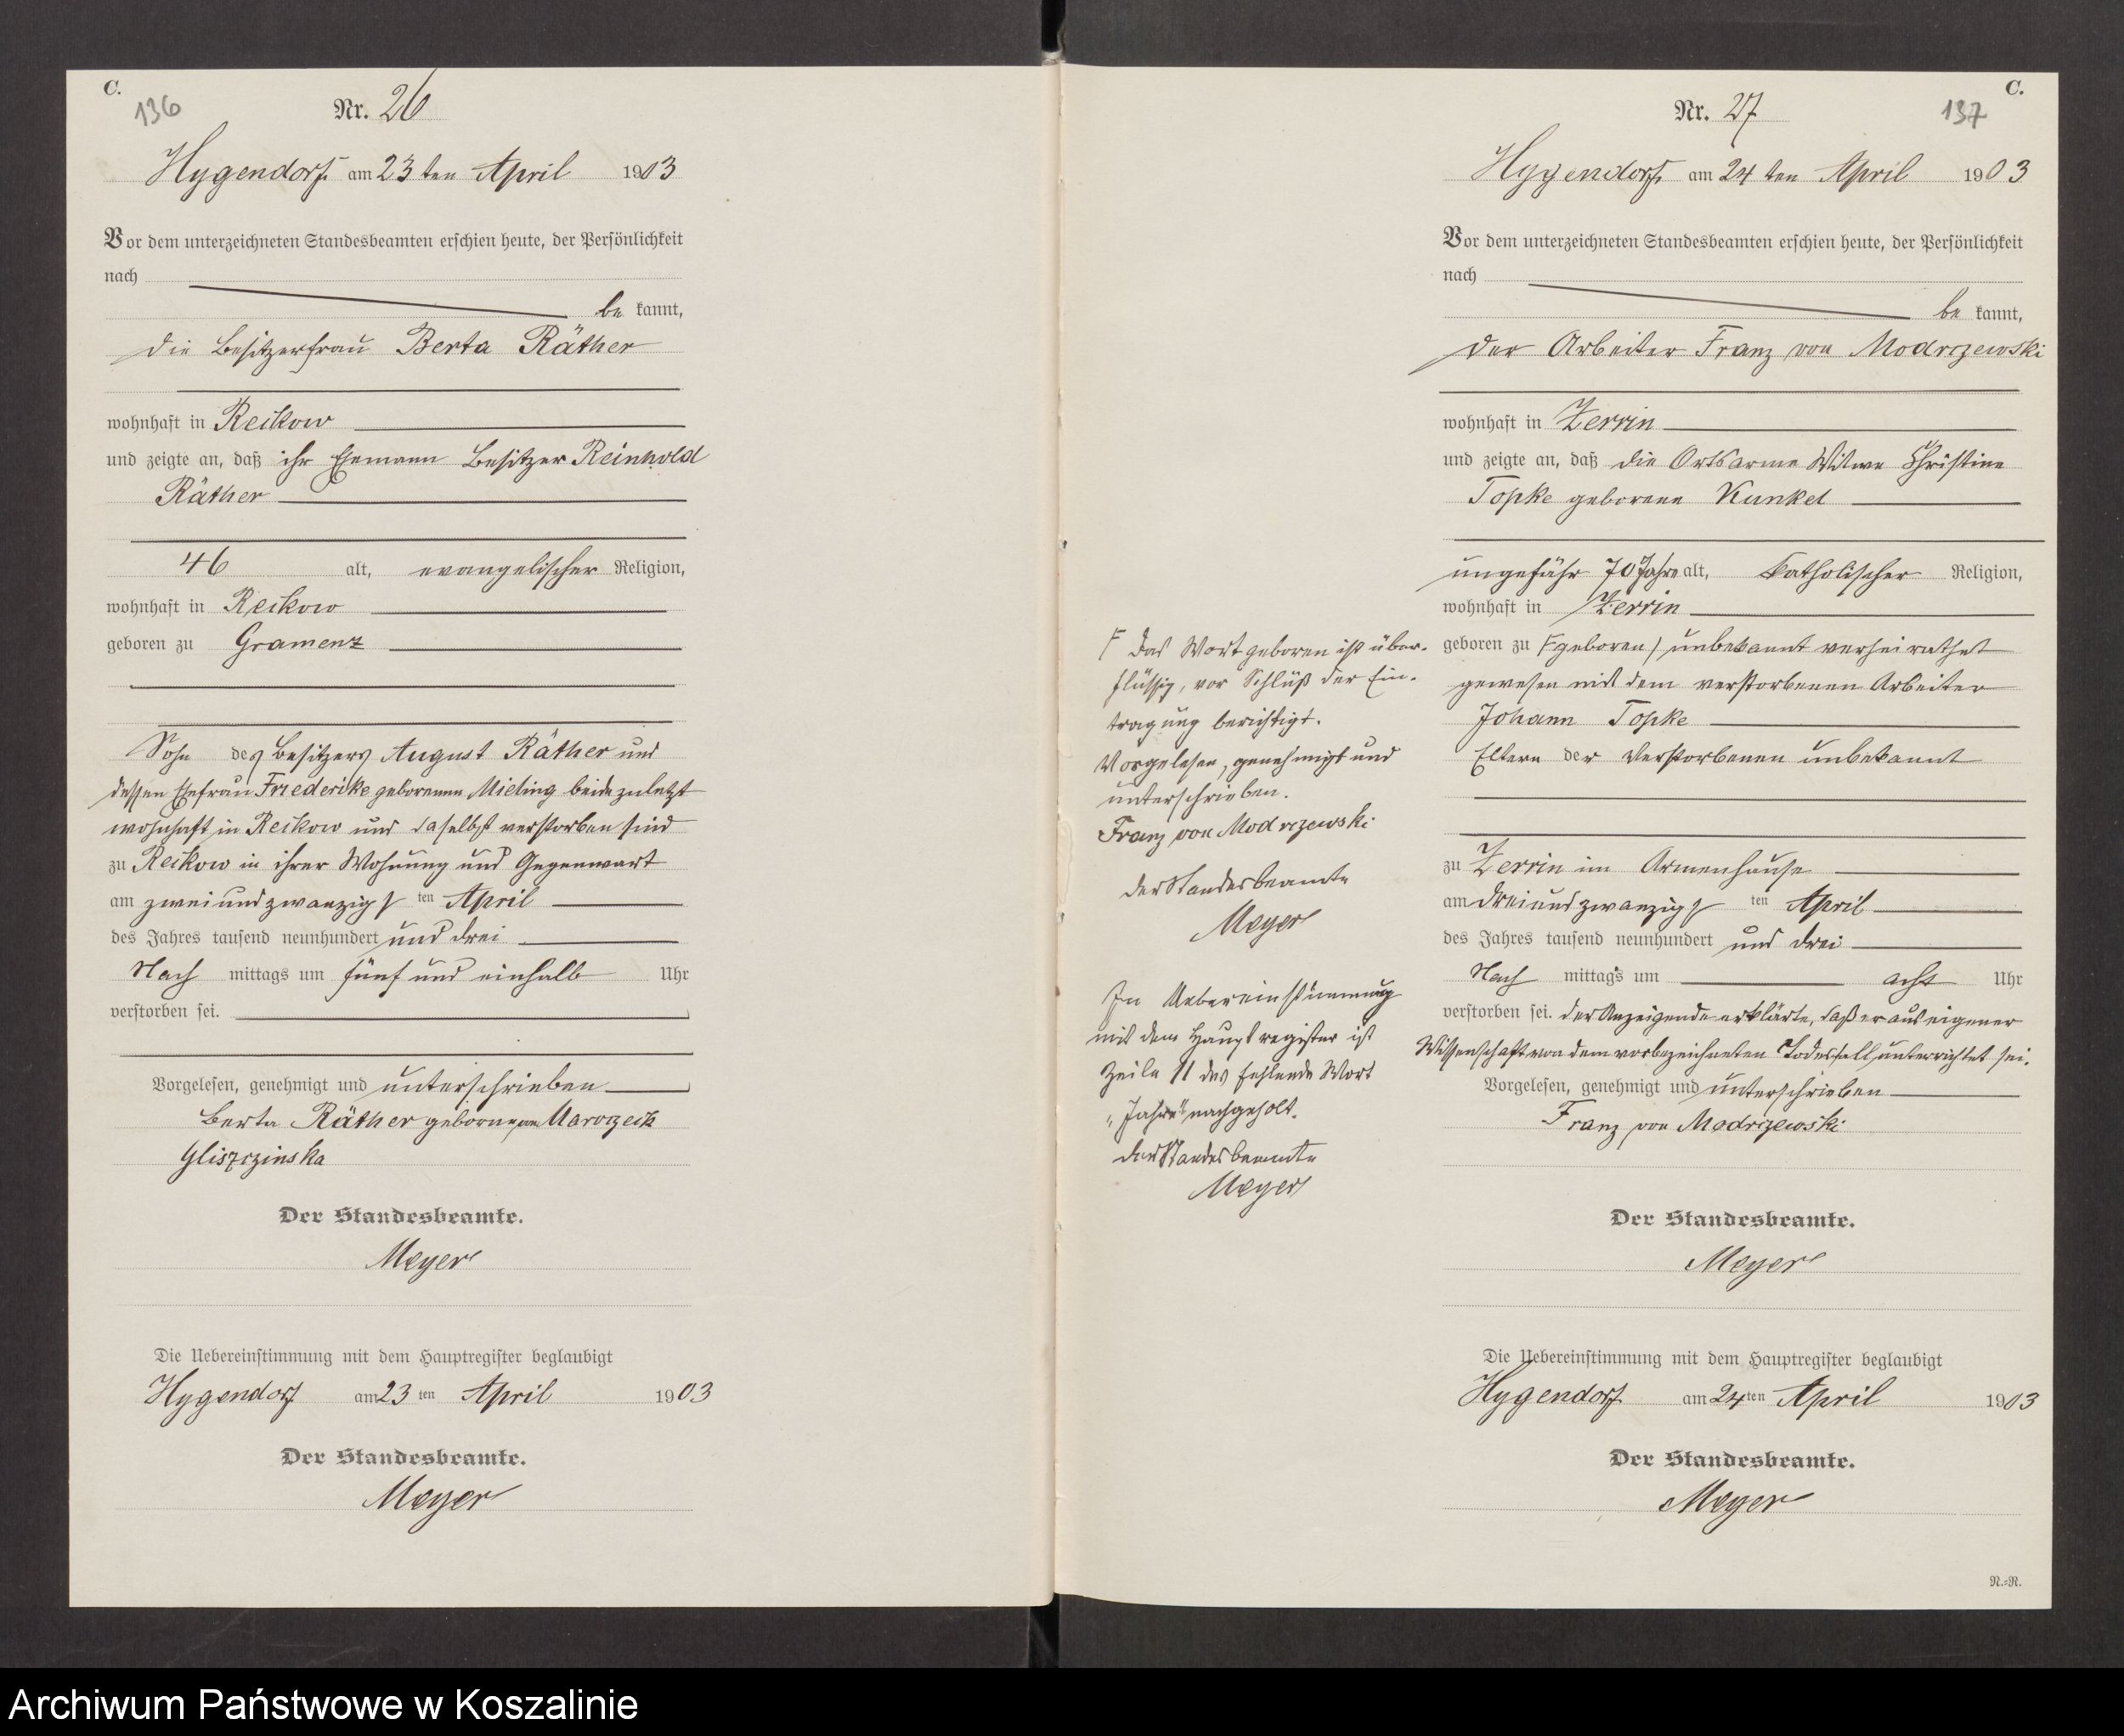 C.
136
Nr. 26
Hygendorf am 23ten April 1903
Vor dem unterzeichneten Standesbeamten erschien heute, der Persönlichkeit
nach
be kannt,
die Besitzerfrau Berta Räther
wohnhaft in Reikow
und zeigte an, daß ihr Ehemann Besitzer Reinhold
Räther
46 alt, evangelischer Religion,
wohnhaft in Reikow
geboren zu Gramenz
Sohn des Besitzers August Räther und
dessen Ehefrau Friederike geborenen Mieling beide zuletzt
wohnhaft in Reikow und daselbst verstorben sind
zu Reikow in ihrer Wohnung und Gegenwart
am zweiundzwanzigs ten April
des Jahres tausend neunhundert und drei
Nach mittags um fünf und einhalb Uhr
verstorben sei.
Vorgelesen, genehmigt und unterschrieben
Berta Räther geborenen
Gliszczinska
Der Standesbeamte.
Meyer
Die Uebereinstimmung mit dem Hauptregister beglaubigt
Hygendorf am 23 ten April 1903
Der Standesbeamte.
Meyer
C.
Nr. 27
137
Hygendorf am 24ten April 1903
Vor dem unterzeichneten Standesbeamten erschien heute, der Persönlichkeit
nach
be kannt,
der Arbeiter Franz von Modrczewski
wohnhaft in Zerrin
und zeigte an, daß die Ortsarme Witwe Christine
Topke geborene Kunkel
ungefähr 70 Jahre alt, katholischer Religion,
wohnhaft in Zerrin
geboren zu F geboren / unbekannt verheirathet
gewesen mit dem verstorbenen Arbeiter
Johann Topke
Eltern der Verstorbenen unbekannt
zu Zerrin im Armenhause
am dreiundzwanzigs ten April
des Jahres tausend neunhundert und drei
Nach mittags um acht Uhr
verstorben sei. der Anzeigende erklärte, daß er aus eigener
Wissenschaft von dem vorbezeichneten Todesfall unterrichtet sei.
Vorgelesen, genehmigt und unterschrieben
Franz von Modrczewski
Der Standesbeamte.
Meyer
Die Uebereinstimmung mit dem Hauptregister beglaubigt
Hygendorf am 24ten April 1903
Der Standesbeamte.
Meyer
N.-N.
F Das Wort geboren ist über-
flüssig, vor Schluß der Ein-
tragung berichtigt.
Vorgelesen, genehmigt und
unterschrieben.
Franz von Modrczewski
Der Standesbeamte
Meyer
In Uebereinstimmung
mit dem Hauptregister ist
Zeile 11 das fehlende Wort
„Jahre" nachgeholt.
Der Standesbeamte
Meyer
Archiwum Państwowe w Koszalinie